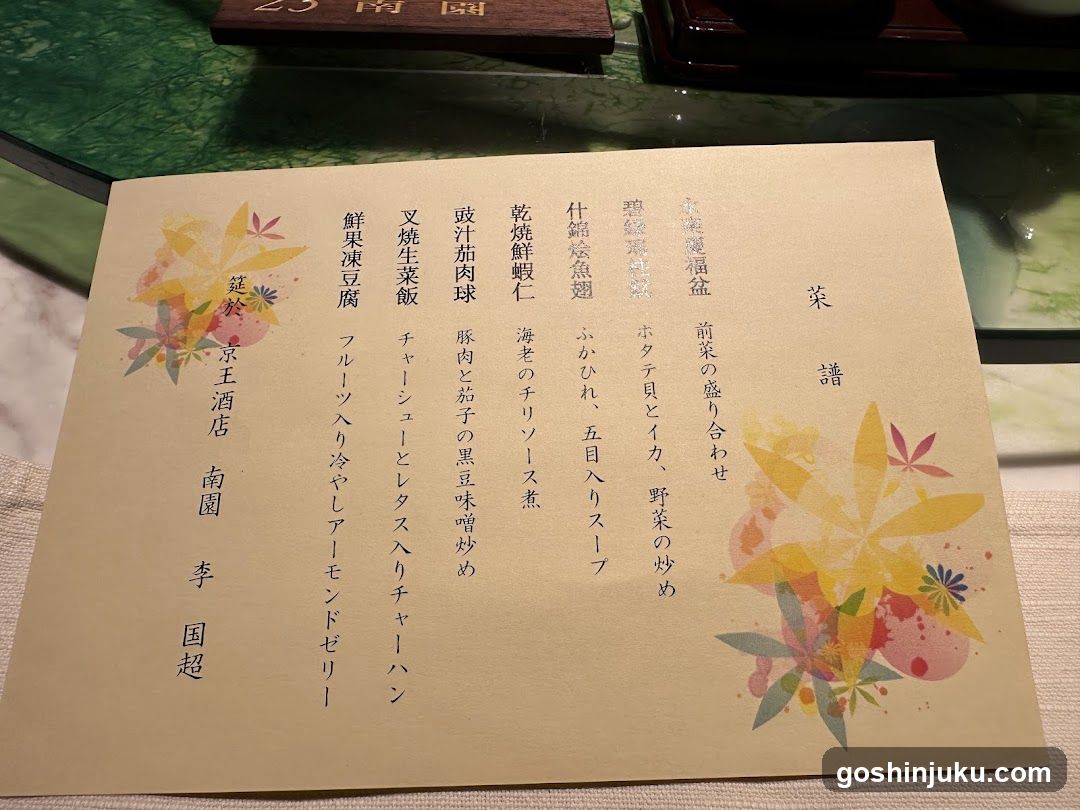 23 南園
菜譜
福盆 前菜の盛り合わせ
碧緑 ホタテ貝とイカ、野菜の炒め
什錦烩魚翅 ふかひれ、五目入りスープ
乾焼鮮蝦仁 海老のチリソース煮
豉汁茄肉球 豚肉と茄子の黒豆味噌炒め
叉焼生菜飯 チャーシューとレタス入りチャーハン
鮮果凍豆腐 フルーツ入り冷やしアーモンドゼリー
筵於 京王酒店 南園 李 国超
goshinjuku.com